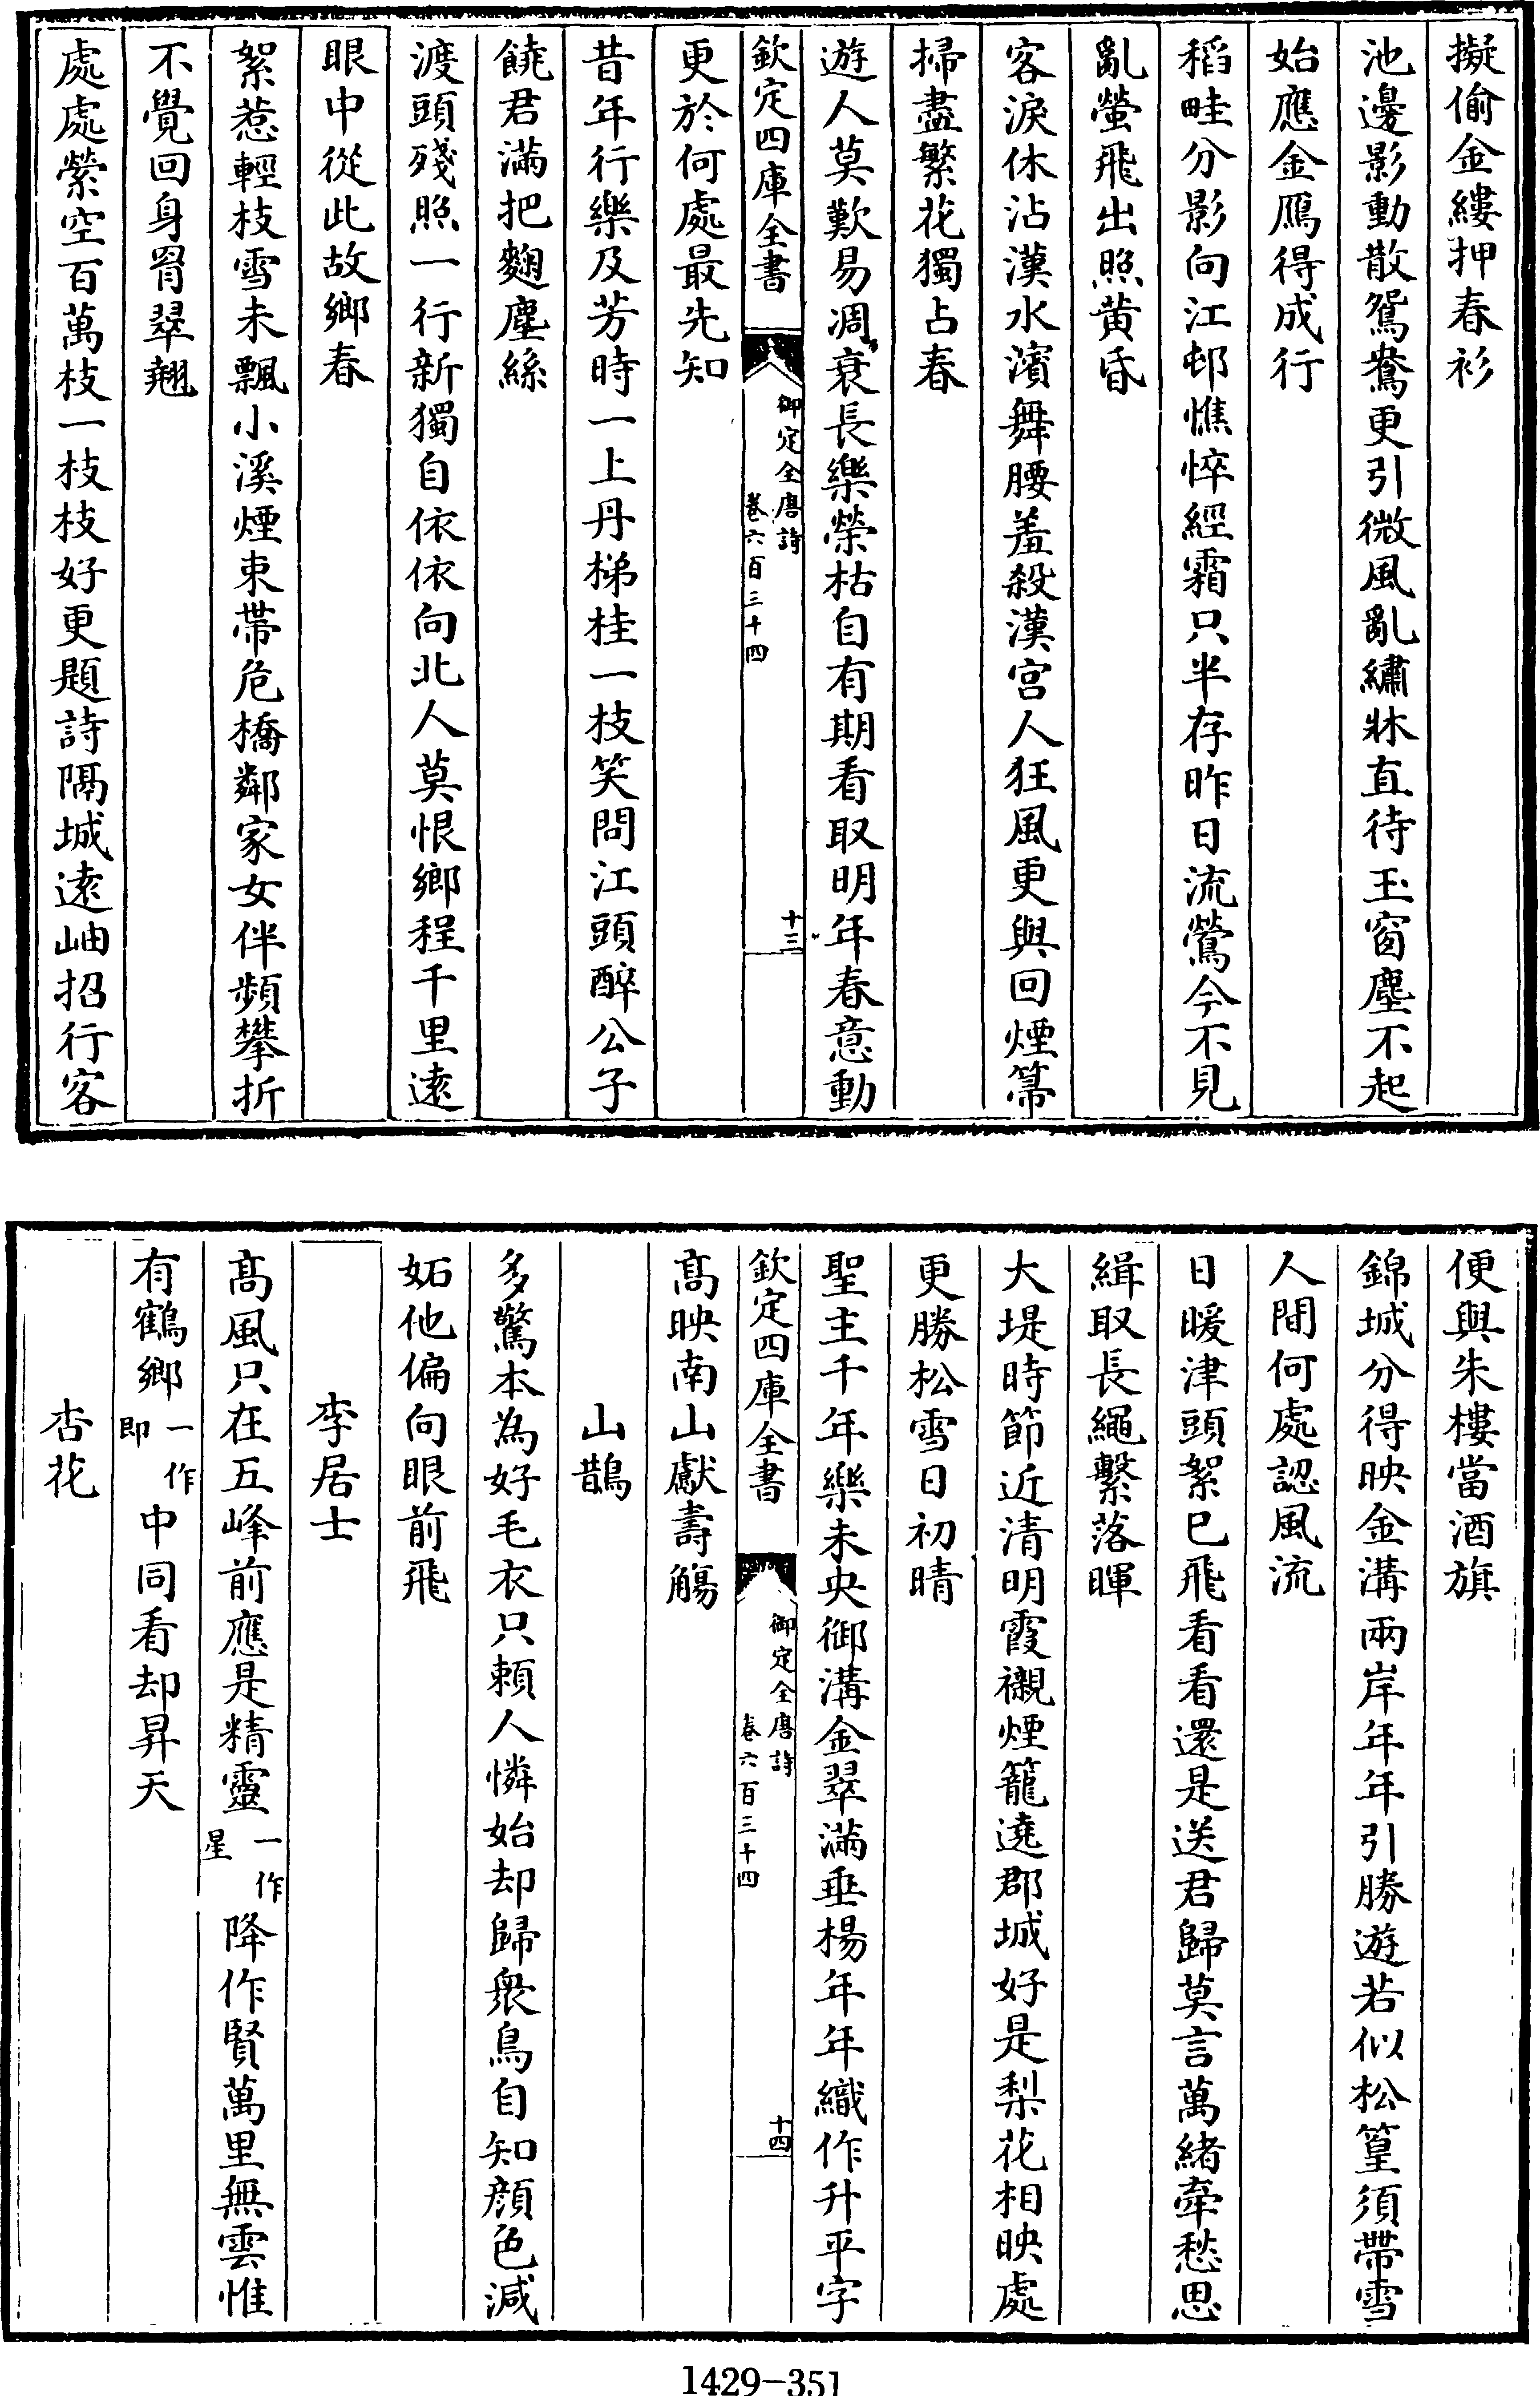 擬偷金縷押春衫
池邊影動散鴛鴦更引微風亂繡牀直待玉窗塵不起
始應金鴈得成行
稻畦分影向江邨憔悴經霜只半存昨日流鶯今不見
亂螢飛出照黄昏
客淚休沾漢水濱舞腰羞殺漢宫人狂風更與回煙箒
掃盡繁花獨占春
遊人莫歎易凋衰長樂榮枯自有期看取明年春意動
欽定四庫全書
御定全唐詩
卷六百三十四
十三
更於何處最先知
昔年行樂及芳時一上丹梯桂一枝笑問江頭醉公子
饒君滿把麴塵絲
渡頭殘照一行新獨自依依向北人莫恨鄉程千里遠
眼中從此故鄉春
絮惹輕枝雪未飄小溪煙束帶危橋鄰家女伴頻攀折
不覺回身罥翠翹
處處縈空百萬枝一枝枝好更題詩隔城遠岫招行客
便與朱樓當酒旗
錦城分得映金溝兩岸年年引勝遊若似松篁須帶雪
人間何處認風流
日暖津頭絮已飛看看還是送君歸莫言萬緒牽愁思
緝取長繩繫落暉
大堤時節近清明霞襯煙籠遶郡城好是梨花相映處
更勝松雪日初晴
聖主千年樂未央御溝金翠滿垂楊年年織作升平字
欽定四庫全書
御定全唐詩
卷六百三十四
十四
髙映南山獻壽觴
山鵲
多驚本為好毛衣只賴人憐始却歸衆鳥自知顔色減
妬他偏向眼前飛
李居士
髙風只在五峰前應是精靈一作星降作賢萬里無雲惟
有鶴鄉一作即中同看却昇天
杏花
1429-351